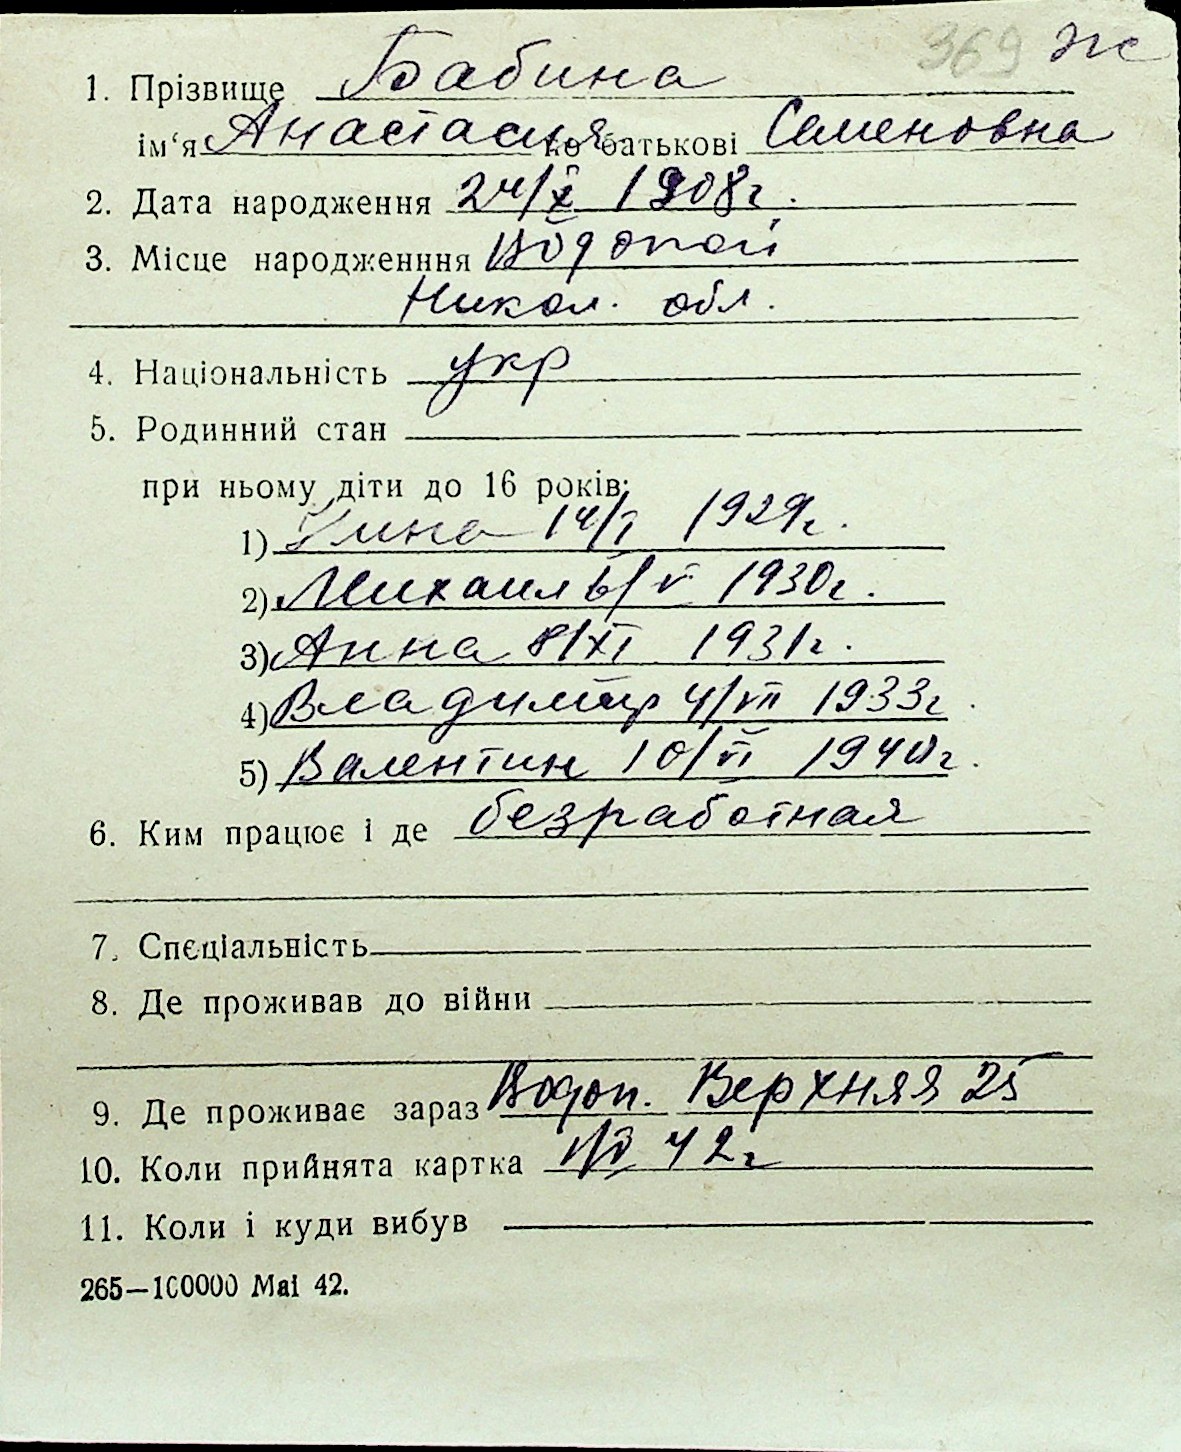 369 Ж
1. Прізвище Бабина
ім‘я Анастасия по батькові Семеновна
2. Дата народження 24/X 1908г.
3. Місце народженння Водопой
Никол. обл.
4. Національність укр
5. Родинний стан
при ньому діти до 16 років:
1) 14/I 1929г.
2) Михаил 6/V 1930г.
3) Анна 8/XI 1931г.
4) Владимир 4/VII 1933г.
5) Валентин 10/VI 1940г.
6. Ким працює і де безработная
7. Спєціальність
8. Де проживав до війни
9. Де проживає зараз Водоп. Верхняя 25
10. Коли прийнята картка 42г
11. Коли і куди вибув
265—100000 Mai 42.